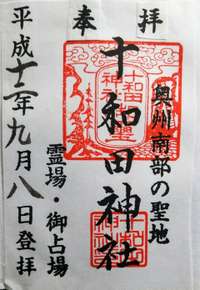 奉拝
奥州南部の聖地
十和田神社
霊場・御占場
平成十二年九月八日登拝